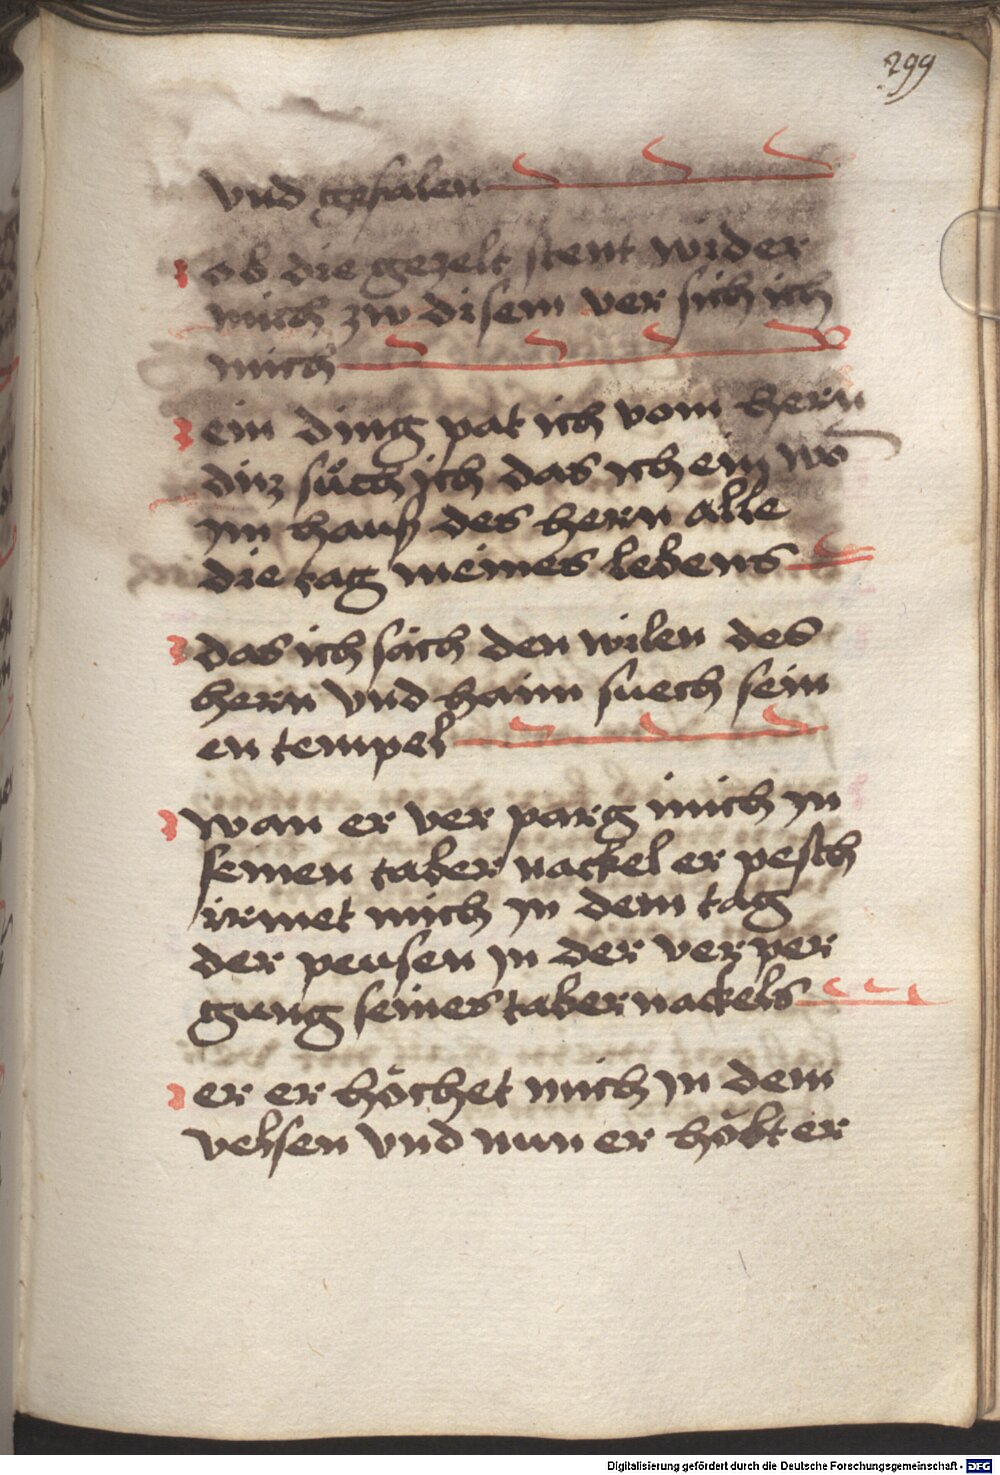 299
vnd gefalen
ob die gezelt stent wider
mich zw disem ver sich ich
mich
ein ding pat ich vom hern
diz sůch ich das ich ein wo
im hauß des hern alle
die tag meines lebens
das ich säch den wilen des
hern vnd haim suech sein
en tempel
wan er ver parg mich in
seinen taber nackel er pesch
irmet mich in dem tag
der peusen in der ver per
gung seines tabernackels
er er höchet mich in dem
velsen vnd nun er höbt er
Digitalisierung gefördert durch die Deutsche Forschungsgemeinschaft - DFG